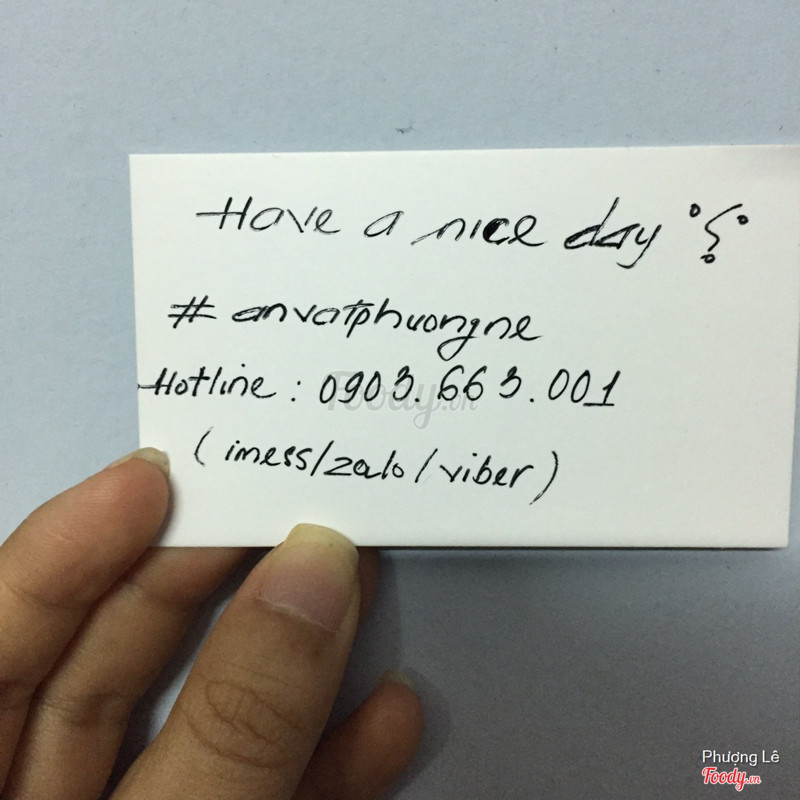 Have a nice day
# anvatphuongne
Hotline : 0903.663.001
Foody.vn
(imess/zalo/viber)
Phượng Lê
Foody.vn